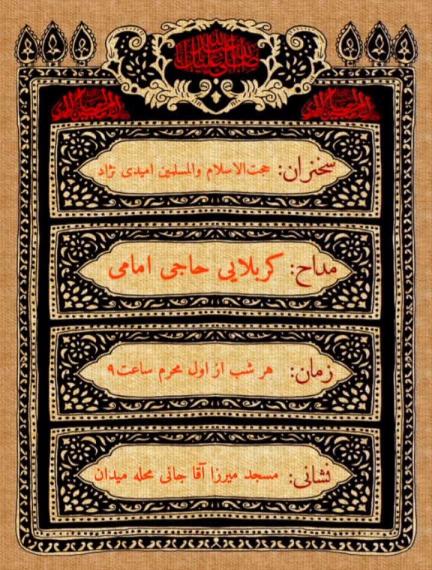 سخنران: حجت‌الاسلام والمسلمین امیدی نژاد
مداح: کربلایی حاجی امامی
زمان: هر شب از اول محرم ساعت۹
نشانی: مسجد میرزا آقا جانی محله میدان